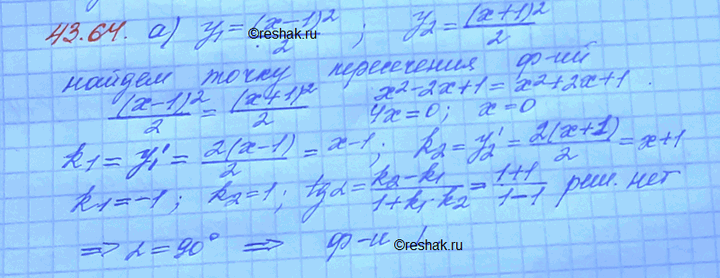 43.64. а) y₁ = (x-1)²/2 ; y₂ = (x+1)²/2
найдем точку пересечения ф-ий
(x-1)²/2 = (x+1)²/2 x²-2x+1 = x²+2x+1.
4x=0; x=0
k₁ = y₁' = 2(x-1)/2 = x-1; k₂ = y₂' = 2(x+1)/2 = x+1
k₁ = -1; k₂ = 1; tg α = (k₂-k₁)/(1+k₁·k₂) = (1+1)/(1-1) реш. нет
⇒ α = 90° ⇒ ф-и
©reshak.ru
©reshak.ru